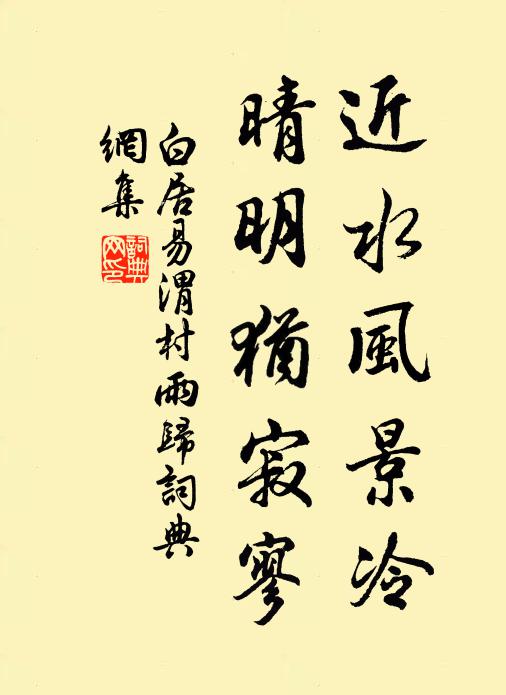 近水風景冷
晴明猶寂寥
白居易渭村雨歸詞典
網集
詞典
网印